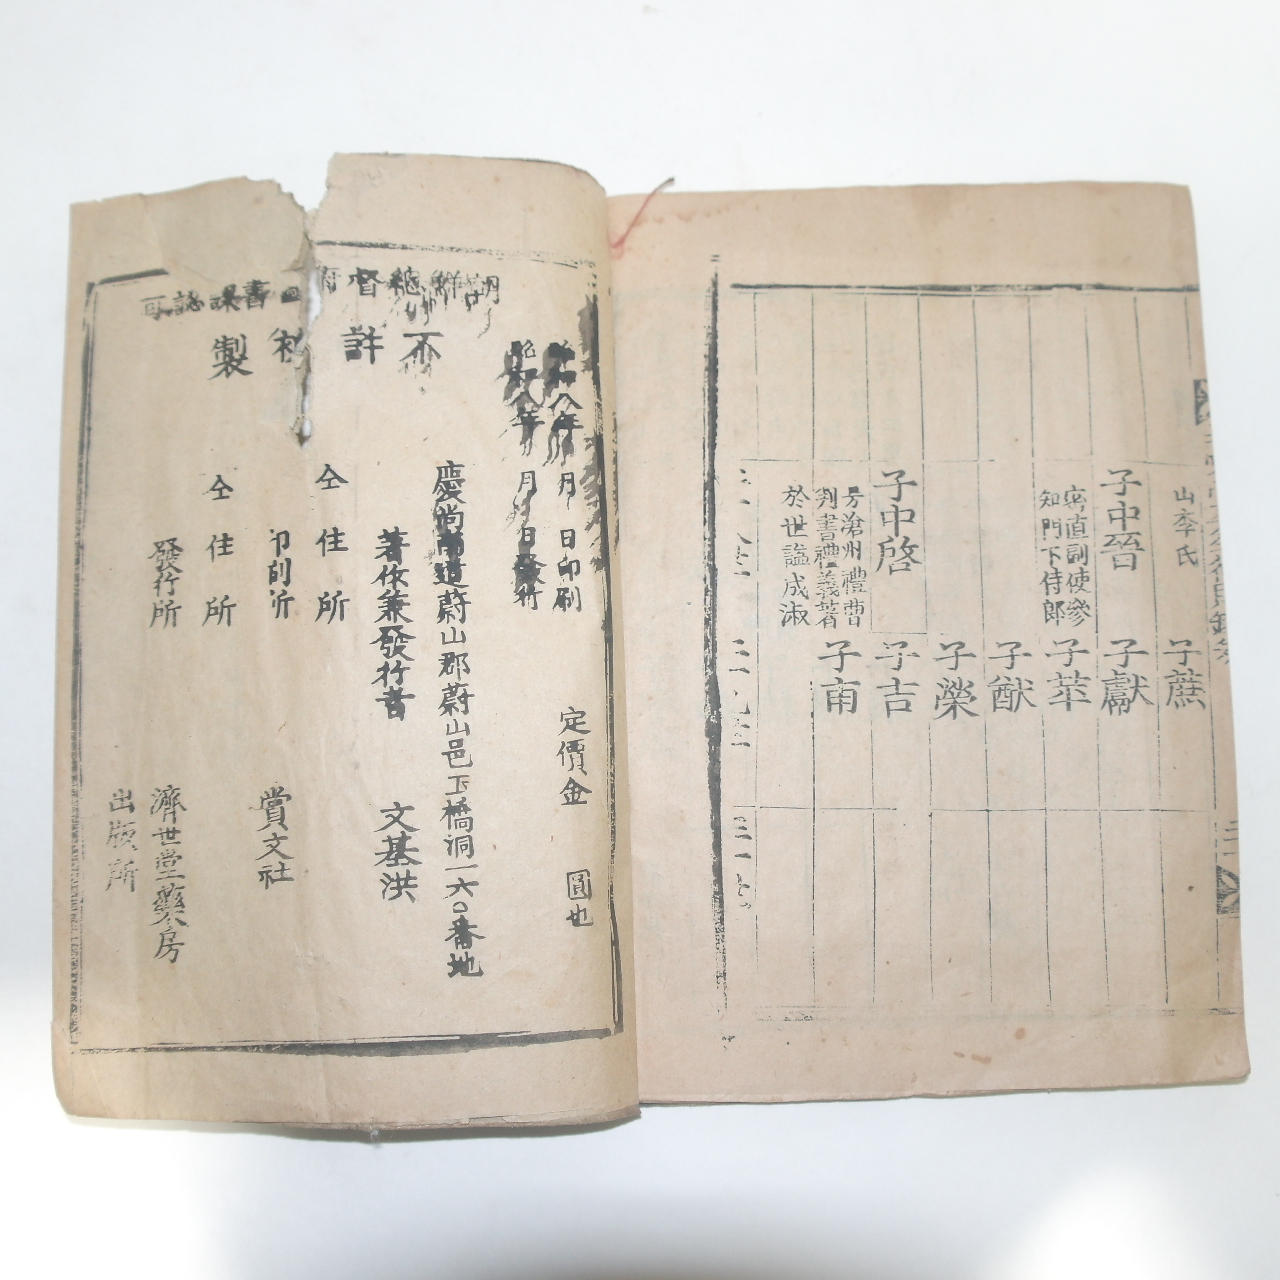 山李氏
子蔗
子中晉
子獻
密直副使參
知門下侍郎
子苹
子猷
子榮
子中啓
子吉
子南
判書禮義著
於世諡成淑
昭和八年 月 日印刷
定價金 圓也
昭和八年 月 日發行
慶尚南道蔚山郡蔚山邑玉橋洞一六〇番地
著作兼發行者 文基洪
仝住所
印刷所 賞文社
仝住所
發行所 濟世堂藥房
出版所
不許複製